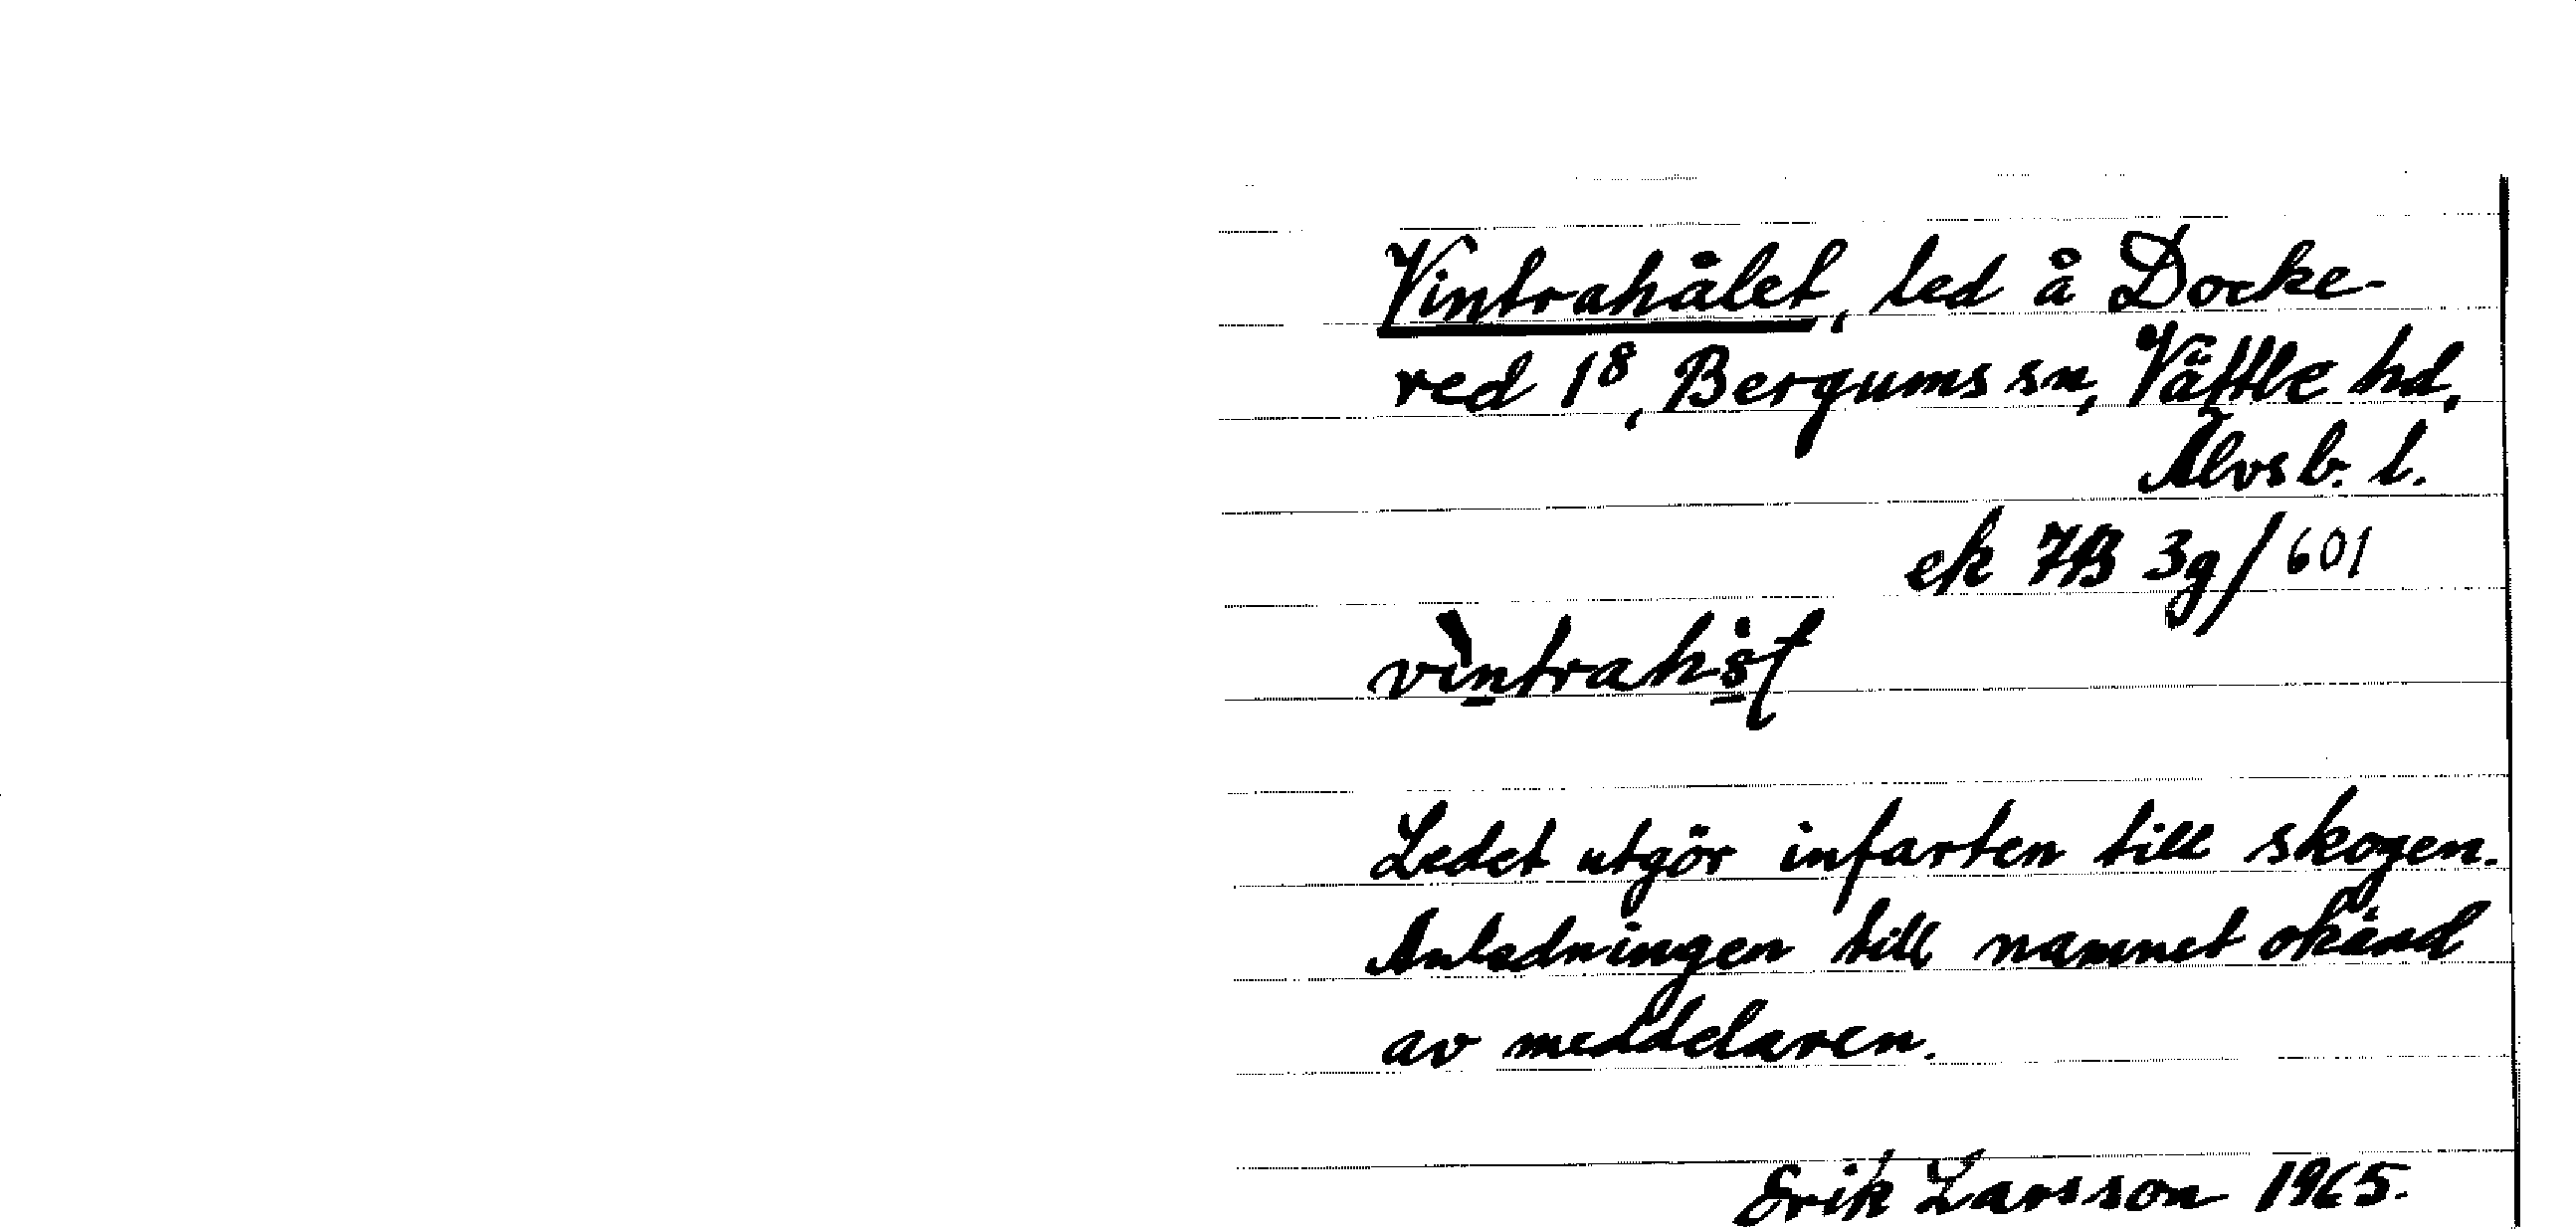 Vintrahålet, led å Docke-
red 1⁸, Bergums sn, Vättle hd,
Älvsb. l.
ek 7B 3g/601
Ledet utgör infarten till skogen.
Anledningen till namnet okänd
av meddelaren.
Erik Larsson 1965.